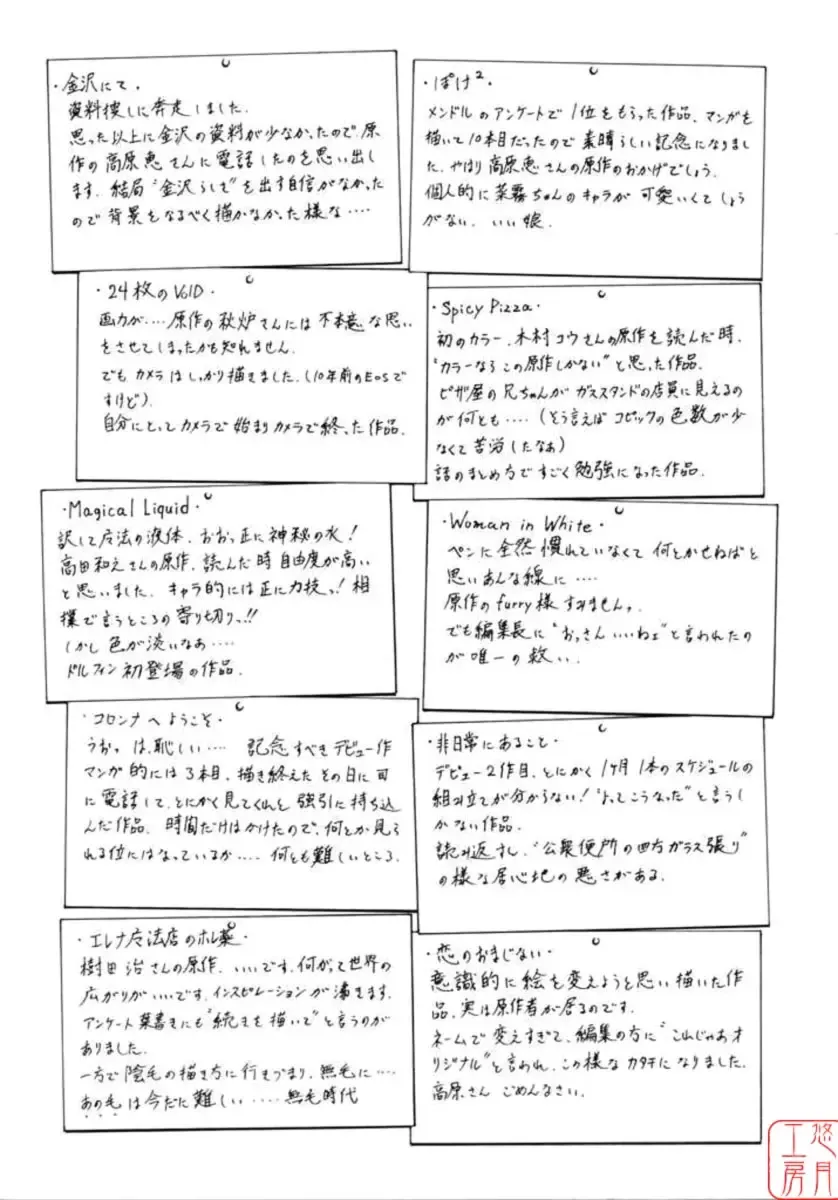 ・金沢にて・
資料捜しに奔走しました。
思った以上に金沢の資料が少なかったので、原
作の高原恵さんに電話したのを思い出し
ます。結局"金沢らしさ"を出す自信がなかった
ので背景をなるべく描かなかった様な‥‥
・ぽけ²・
メンドルのアンケートで1位をもらった作品。マンガを
描いて10本目だったので素晴らしい記念になりまし
た。やはり高原恵さんの原作のおかげでしょう。
個人的に菜霧ちゃんのキャラが可愛いくてしょう
がない。いい娘。
・24枚のVOID・
画力が‥‥原作の秋炉さんには不本意な思い
をさせてしまったかも知れません。
でもカメラはしっかり描きました。(10年前のEOSで
すけど)。
自分にとってカメラで始まりカメラで終った作品。
・Spicy Pizza・
初のカラー。木村コウさんの原作を読んだ時、
"カラーならこの原作しかない"と思った作品。
ピザ屋の兄ちゃんがガススタンドの店員に見えるの
が何とも‥‥(そう言えばコピックの色数が少
なくて苦労したなぁ)
話のまとめ方ですごく勉強になった作品。
・Magical Liquid・
訳して魔法の液体。おおっ正に神秘の水!
高田和えさんの原作。読んだ時自由度が高い
と思いました。キャラ的には正に力技っ!相
撲で言うところの寄り切りっ!!
しかし色が淡いなぁ‥‥
ドルフィン初登場の作品。
・Woman in White・
ペンに全然慣れていなくて何とかせねばと
思いあんな線に‥‥
原作のfurry様すみませんっ。
でも編集長に"おっさんいいねェ"と言われたの
が唯一の救い。
・コロンナへようこそ・
うおっは、恥しい‥‥ 記念すべきデビュー作
マンガ的には3本目。描き終えたその日に可
に電話して、とにかく見てくれと強引に持ち込
んだ作品。時間だけはかけたので、何とか見ら
れる位にはなっているか‥‥何とも難しいところ。
・非日常にあること・
デビュー2作目。とにかく1ヶ月1本のスケジュールの
組み立てが分からない!"よってこうなった"と言うし
かない作品。
読み返すし、"公衆便所の四方ガラス張り"
の様な居心地の悪さがある。
・エレナ魔法店のホレ薬・
樹田治さんの原作。いいです。何がって世界の
広がりがいいです。インスピレーションが湧きます。
アンケート葉書きにも"続きを描いて"と言うのが
ありました。
一方で陰毛の描き方に行きづまり、無毛に‥‥
あの毛は今だに難しい‥‥無毛時代
・恋のおまじない・
意識的に絵を変えようと思い描いた作
品。実は原作者が居るのです。
ネームで変えすぎて、編集の方に"これじゃあオ
リジナル"と言われ、この様なカタチになりました。
高原さんごめんなさい。
悠月工房